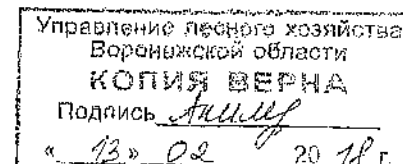 Управление лесного хозяйства
Воронежской области
КОПИЯ ВЕРНА
Подпись
« 13 » 02 20 18 г.